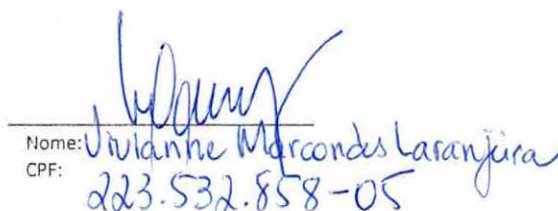 Nome: Vivianne Marcondes Laranjeira
CPF:
223.532.858-05